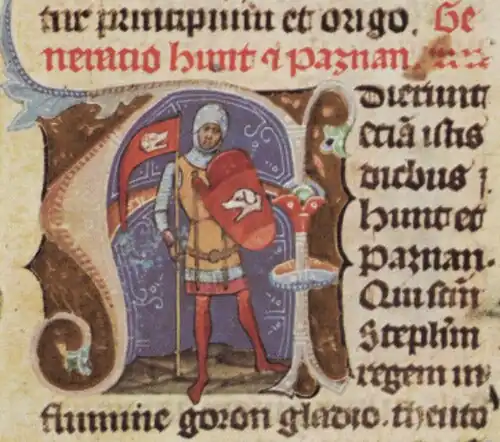 tur principium et origo. Ge
neratio hunt ⁊ paznan
Adierunt
eciā istis
diebus ⁊
hunt et
paznan.
Qui scm̄
Stephm̄
regem in
flumine goron gladio. theuto